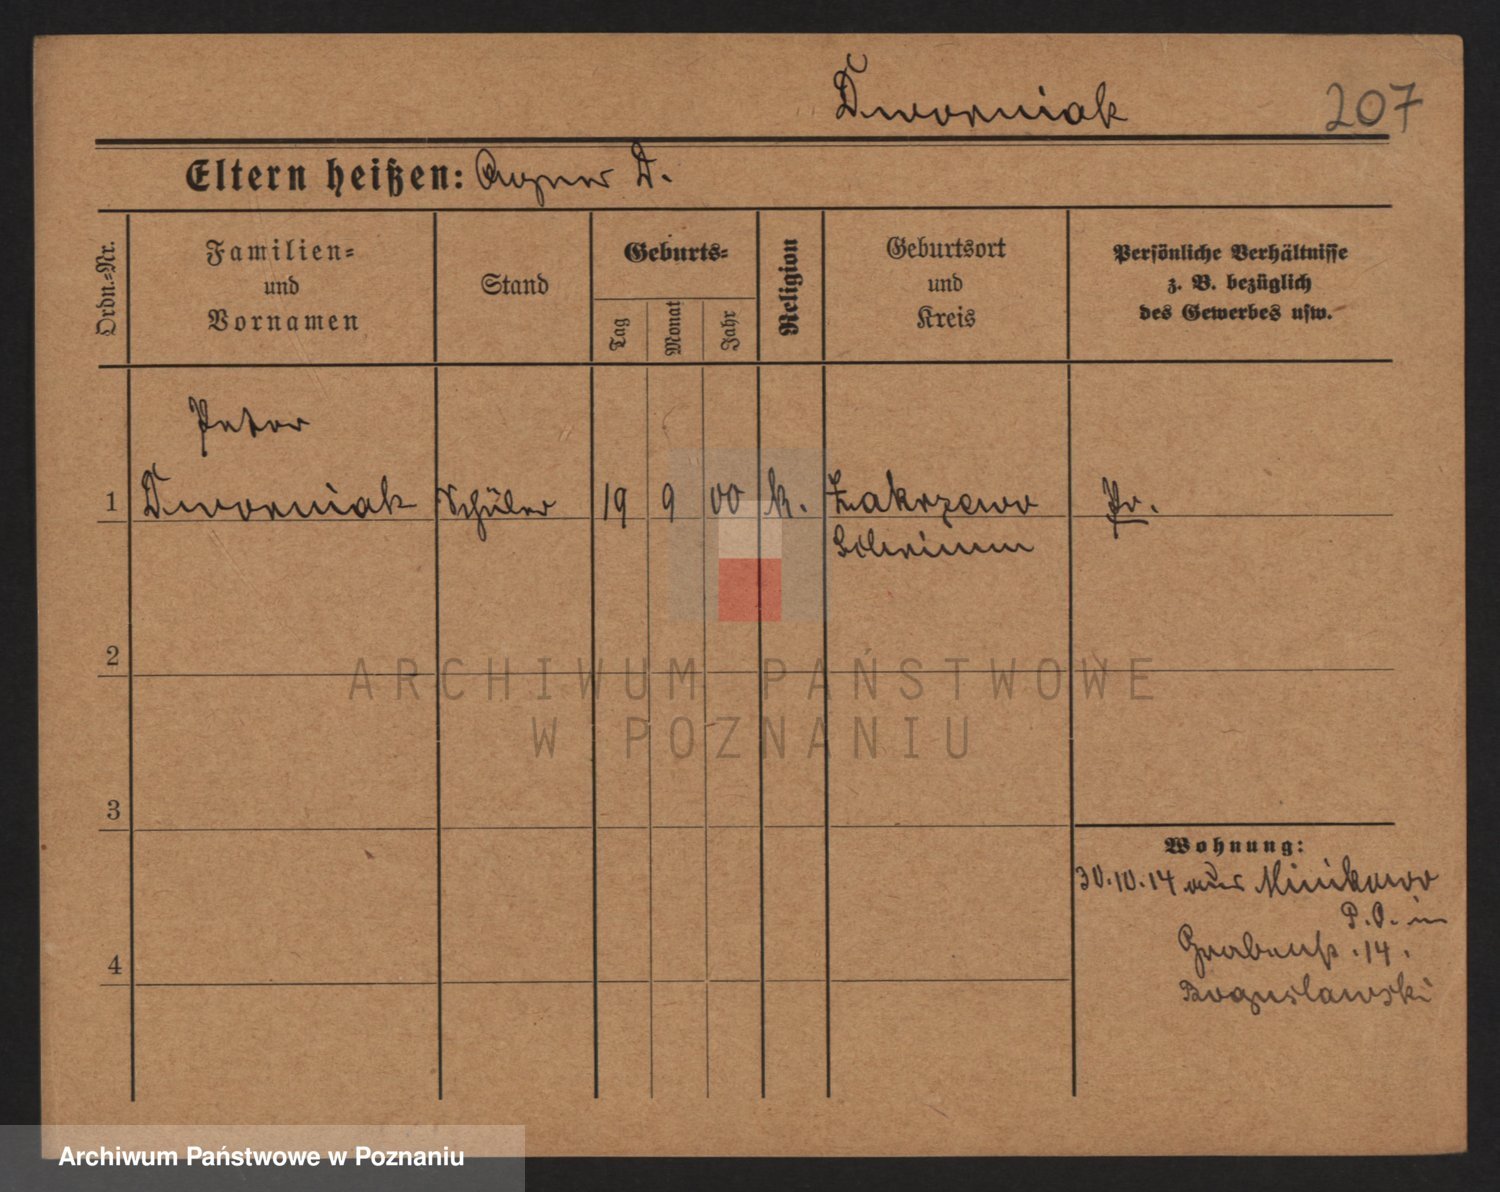 Dworniak
207
Eltern heißen: D.
Ordn.-Nr.
Familien-
und
Vornamen
Stand
Geburts-
Tag
Monat
Jahr
Religion
Geburtsort
und
Kreis
Persönliche Verhältnisse
z. B. bezüglich
des Gewerbes usw.
Peter
1 Dworniak Schüler 19 9 00 k. Zakrzewo Pr.
Schrimm
2
3
4
Wohnung:
30.10.14 aus Minikowo
P.O. in
Grabenstr. 14.
Boguslawski
ARCHIWUM PAŃSTWOWE
W POZNANIU
Archiwum Państwowe w Poznaniu